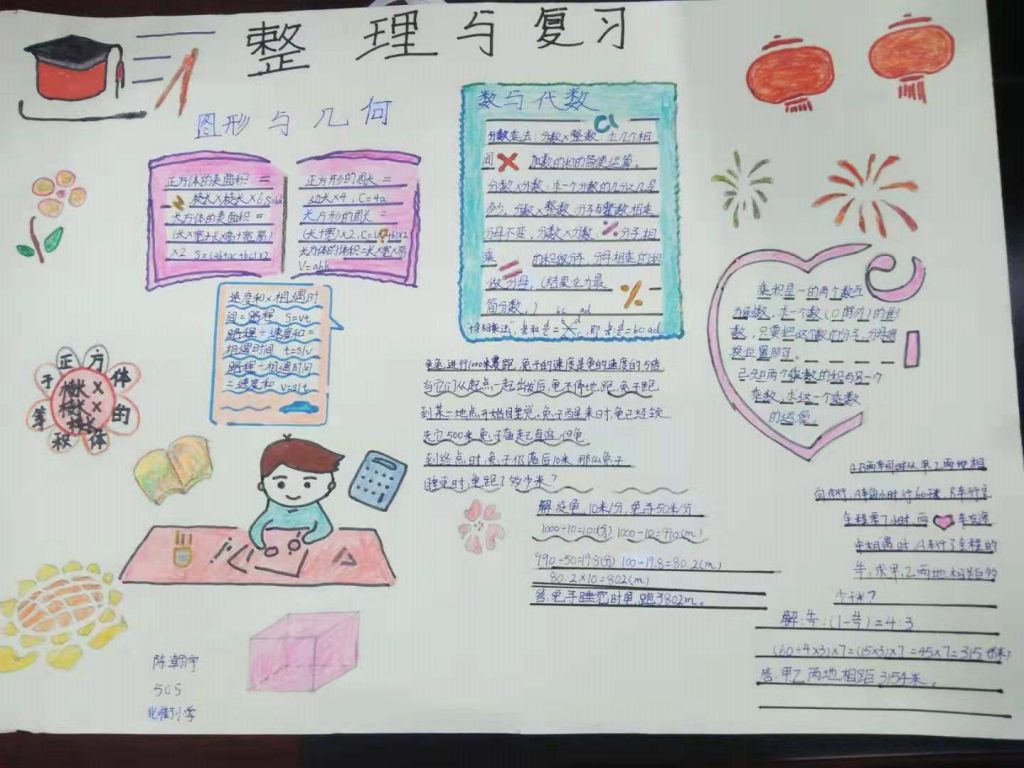 整理与复习
图形与几何
正方体的表面积 =
棱长×棱长×6, S=6a
长方体的表面积 =
(长×宽+长×高+宽×高)
×2 S=(ab+ac+bc)×2
正方形的周长 =
边长×4, C=4a
长方形的周长 =
(长+宽)×2, C=(a+b)×2
长方体的体积=长×宽×高
V=abh
速度和×相遇时
间=路程 S=vt
路程÷速度和=
相遇时间 t=s/v
路程÷相遇时间
=速度和 v=s/t
数与代数
分数乘法:分数×整数:求几个相
同 加数的和的简便运算。
分数×分数:求一个分数的几分之几是
多少, 分数×整数:分子与整数相乘
分母不变, 分数×分数: 分子相
乘 的积做分子, 分母相乘的积
做分母, (结果化为最
简分数,)
乘积是一的两个数互
为倒数, 求一个数(0除外)的倒
数, 只要把这个数的分子,分母调
换位置即可。
已知两个乘数的积与另一个
乘数, 求这一个乘数
的运算。
正方体的体积等于
棱长×棱长×棱长
龟兔进行1000米赛跑,兔子的速度是龟的速度的5倍
当它们从起点一起出发后,龟不停地跑,兔子跑
到某一地点开始睡觉,兔子醒来时,龟已经领
先它500米,兔子奋起直追,但龟
到终点时,兔子仍落后10米,那么兔子
睡觉时,龟跑了多少米?
解:设龟10米/分,兔子50米/分
1000÷10=100(分) 1000-10=990(m)
990÷50=19.8(分) 100-19.8=80.2(m)
80.2×10=802(m)
答:兔子睡觉时龟跑了802m。
A,B两车同时从甲乙两地相
向而行,A车每小时行60千米,B车行完
全程需7小时,两车在途
中相遇时,A车行了全程的
,求甲,乙两地相距多
少千米?
(60÷4×3)×7=(15×3)×7=45×7=315
答:甲乙两地相距315千米。
陈潮宇
505
小学